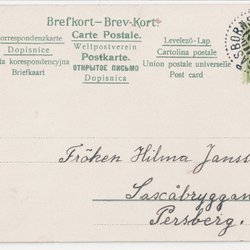 Brefkort-Brev-Kort
Carte Postale.
Weltpostverein
Postkarte.
ОТКРЫТОЕ ПИСЬМО
Dopisnica
orrespondenzkarte
Dopisnice
ta korespondencyjna
Briefkaart
Levelező-Lap
Cartolina postale
Union postale universelle
Post card
SBOR
Fröken Hilma Janss
Saxåbryggan
Persberg.